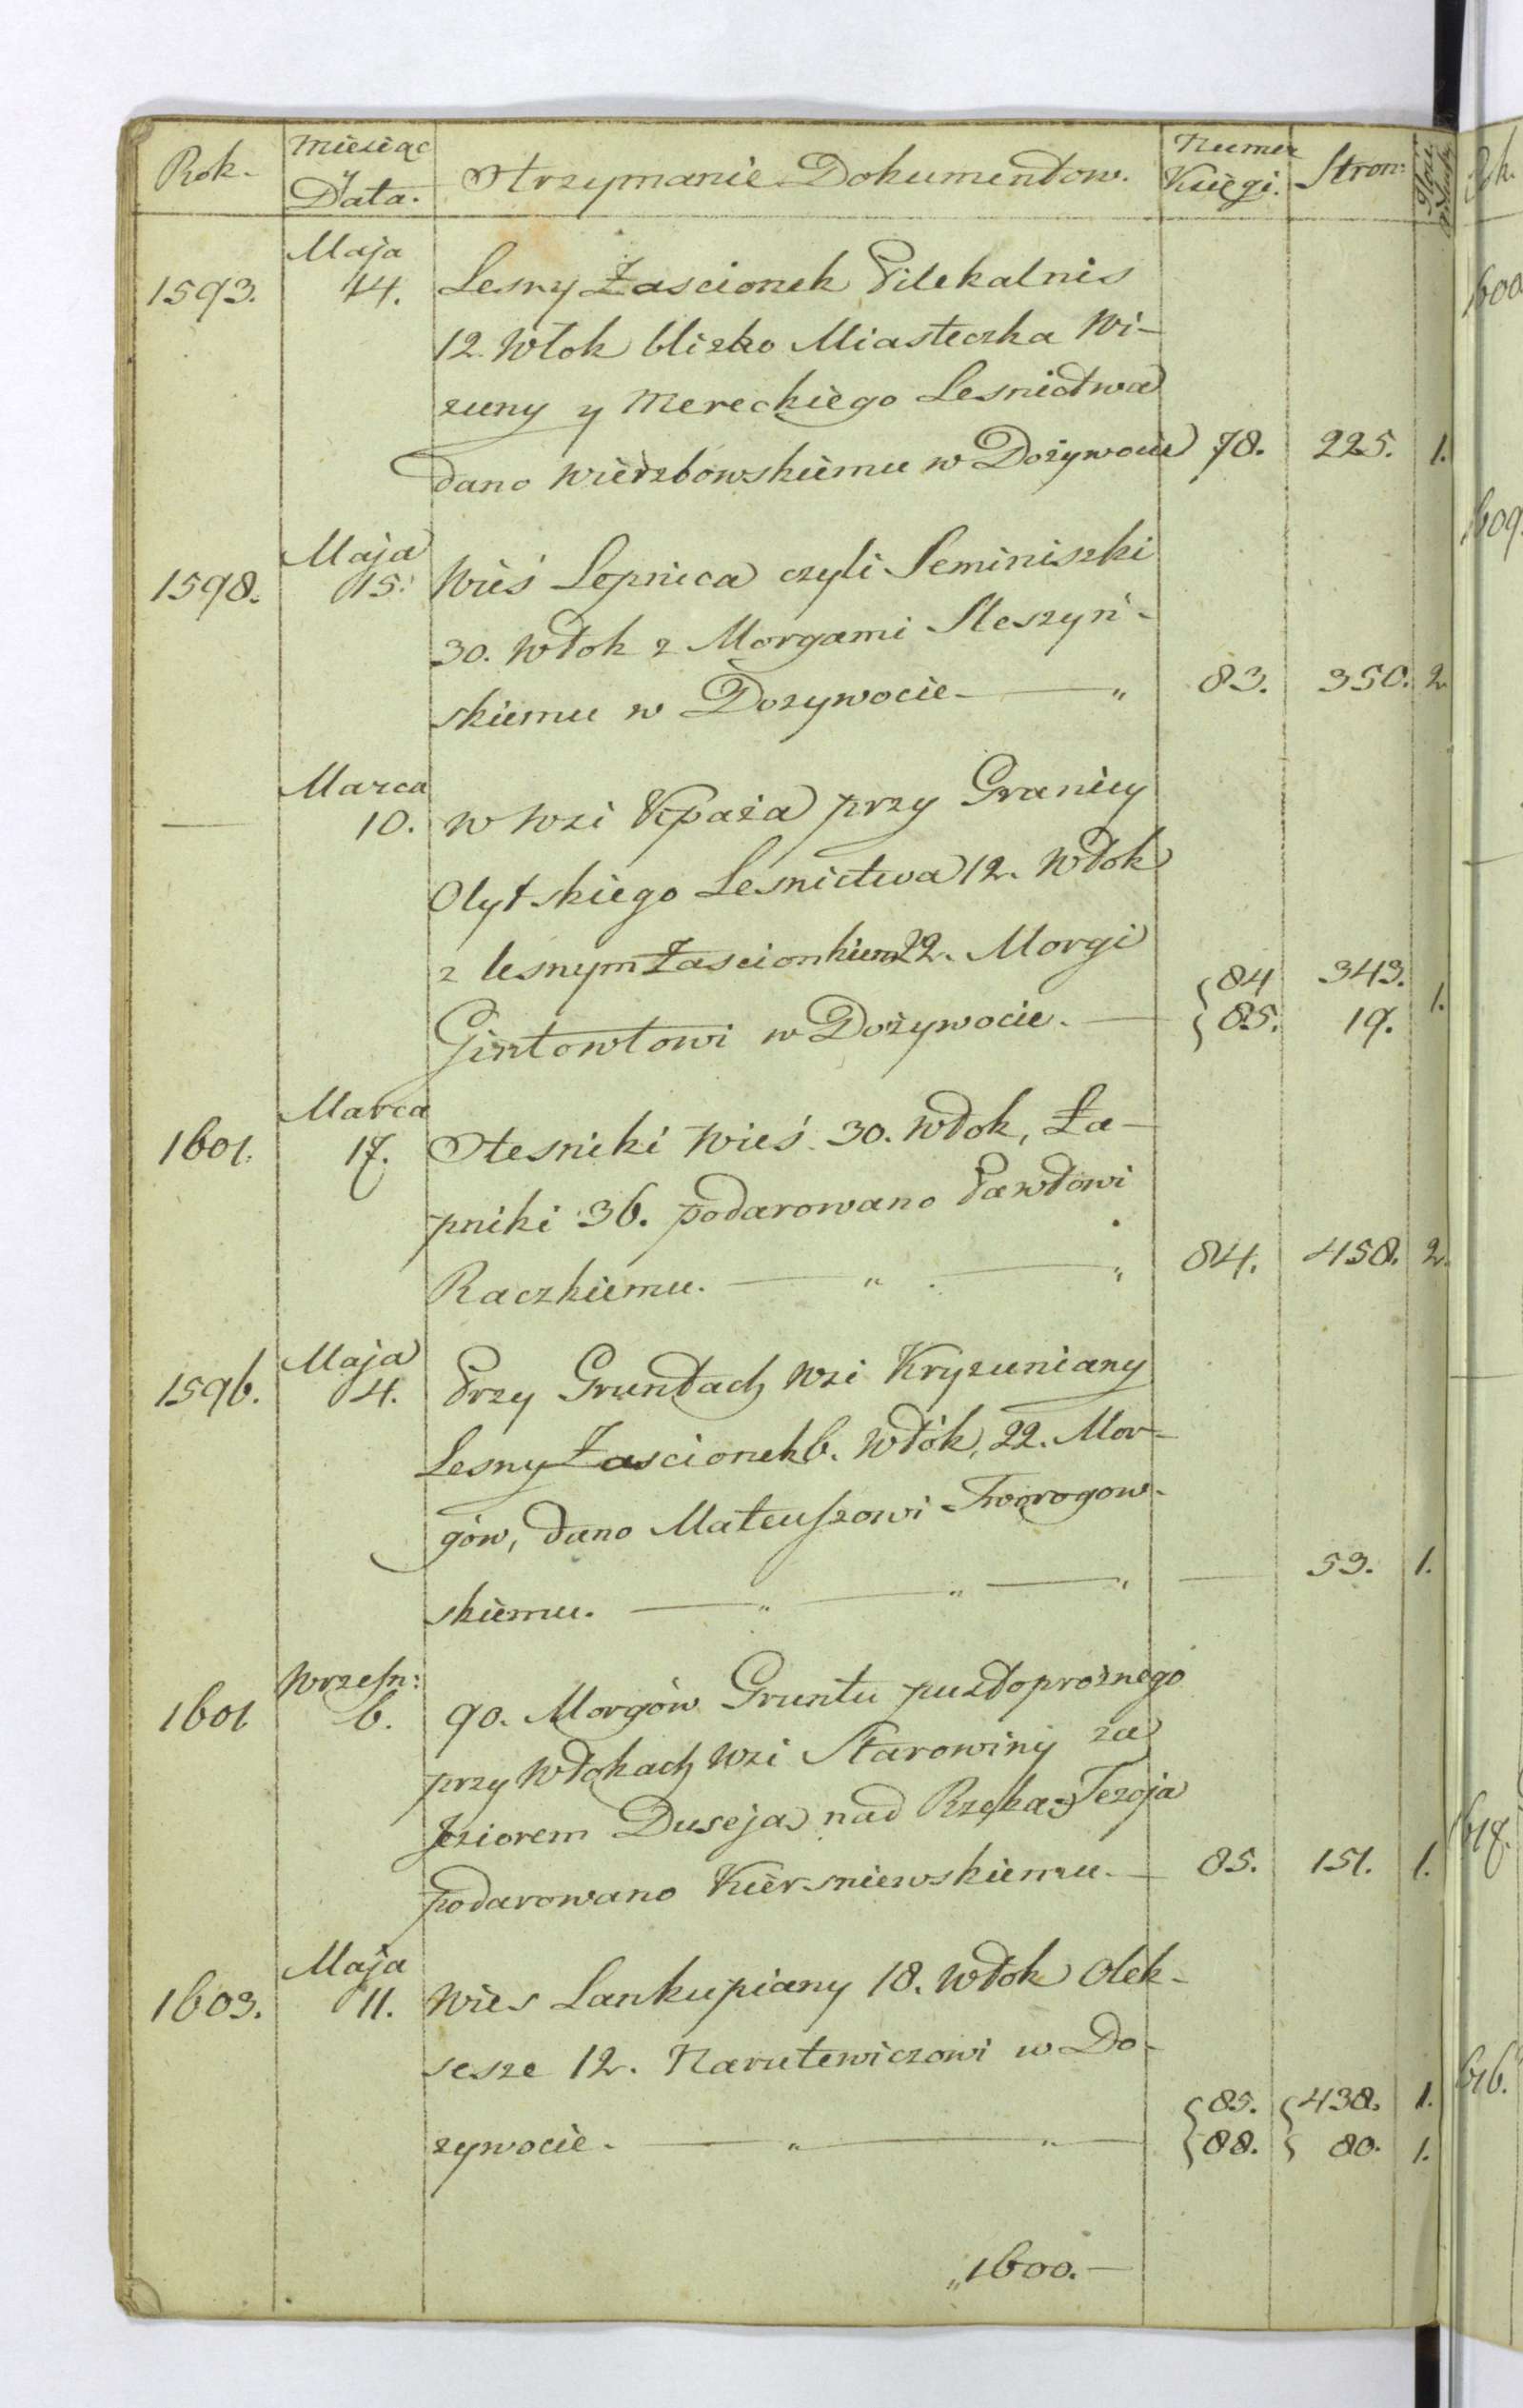 Rok. Miesiąc y Data. Otrzymanie Dokumentow. Numer Księgi. Stron:
Maja
1593. 14. Lesny Zascionek Pilekalnis
12. Włok blizko Miasteczka Wi-
zuny y Mereckiego Lesnictwa
dano Wierzbowskiemu w Dożywocie 78. 225. 1.
Maja
1598. 15. Wieś Lopnica czyli Seminiszki
30. Włok z Morgami Steszyń-
skiemu w Dozywocie — " 83. 350. 2
Marca
— 10. W Wsi Kpaża przy Granicy
Olytskiego Lesnictwa 12. Włok
z lesnym Zascionkiem 22. Morgi
Gintowtowi w Dożywocie. — {84 343. 1.
{85. 19.
Marca
1601. 17. Olesniki Wieś 30. Włok, Ła-
pniki 36. podarowano Pawłowi
Raczkiemu. — " — " 84. 458. 2.
Maja
1596. 4. Przy Gruntach Wsi Kryzuniany
Lesny Zascionek 6. Włók, 22. Mor-
gów, dano Mateuszowi Tworogow-
skiemu. — " — " — " — 53. 1.
Wrześn:
1601 6. 90. Morgów Gruntu pustoprożnego
przy Włokach Wsi Starowiny za
Jeziorem Duseja nad Rzeką Tezoja
podarowano Kiersniewskiemu. — 85. 151. 1.
Maja
1603. 11. Wies Lankupiany 18. Włok Olek-
sesze 12. Narutewiczowi w Do-
zywocie. — " — " — {85. {438. 1.
{88. { 80. 1.
"1600. —